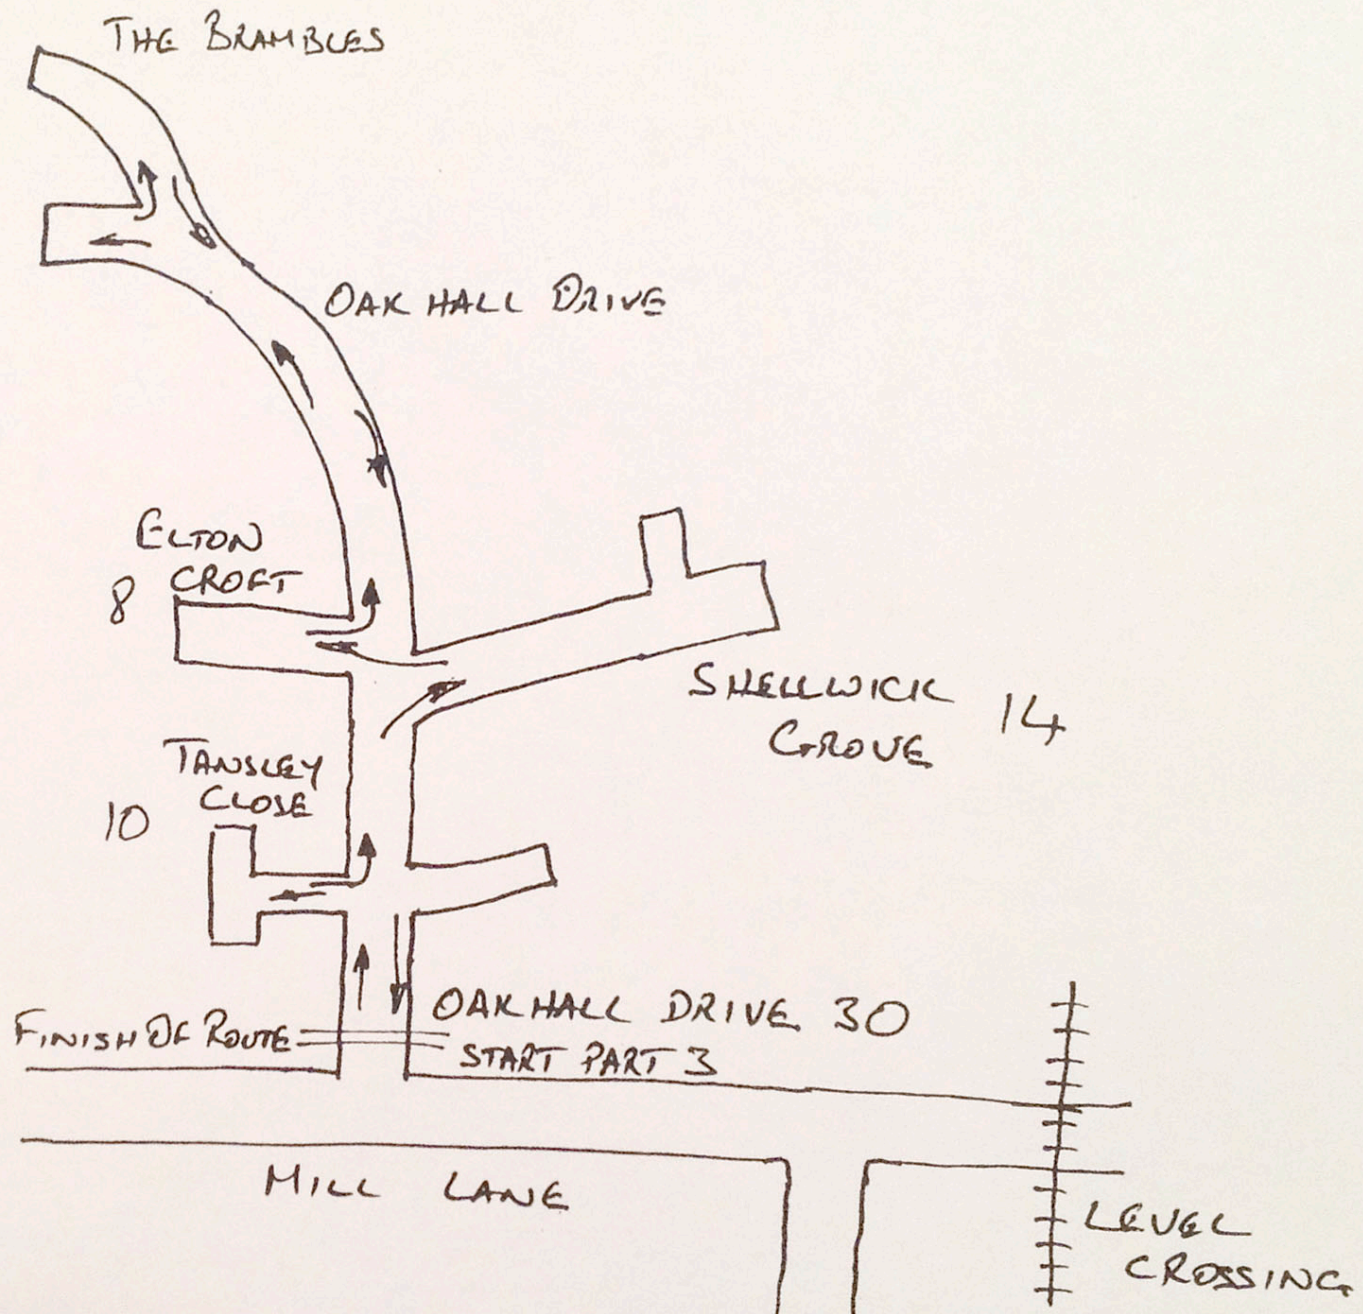 THE BRAMBLES
OAK HALL DRIVE
ELTON
CROFT
8
SHELLWICK
GROVE
14
TANSLEY
CLOSE
10
OAKHALL DRIVE 30
FINISH OF ROUTE
START PART 3
MILL LANE
LEVEL
CROSSING